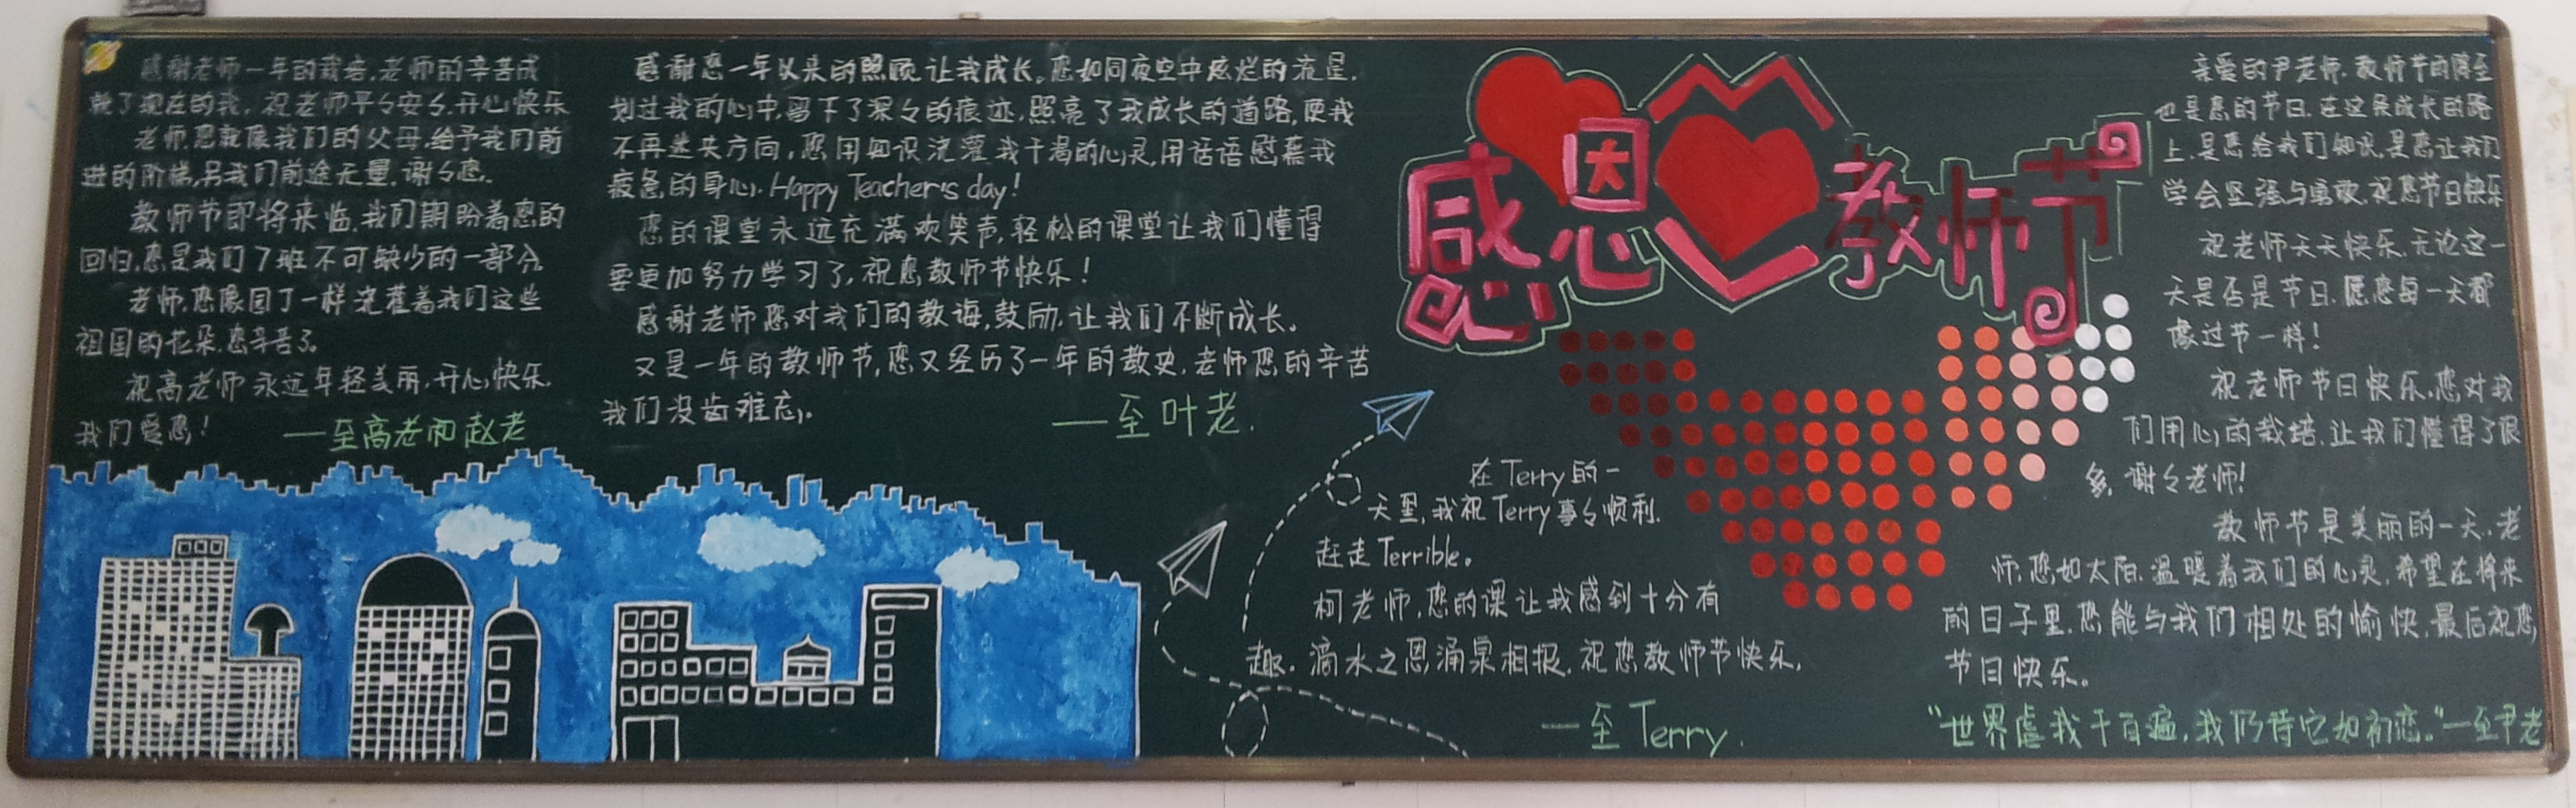 感谢老师一年的栽培,老师的辛苦成
就了现在的我,祝老师平々安々,开心快乐
老师,您就像我们的父母,给予我们前
进的阶梯,另我们前途无量,谢々您。
教师节即将来临,我们期盼着您的
回归,您是我们7班不可缺少的一部分
老师,您像园丁一样浇灌着我们这些
祖国的花朵,您辛苦了。
祝高老师永远年轻美丽,开心快乐.
我们爱您!
——至高老和赵老
感谢您一年以来的照顾,让我成长。您如同夜空中炫烂的流星,
划过我的心中,留下了深々的痕迹,照亮了我成长的道路,使我
不再迷失方向,您用知识浇灌我干渴的心灵,用话语慰藉我
疲惫的身心. Happy Teacher's day!
您的课堂永远充满欢笑声,轻松的课堂让我们懂得
要更加努力学习了,祝您教师节快乐!
感谢老师您对我们的教诲,鼓励,让我们不断成长。
又是一年的教师节,您又经历了一年的教史,老师您的辛苦
我们没齿难忘,。
——至叶老.
感恩教师节
在Terry的一
天里,我祝Terry事々顺利.
赶走Terrible。
柯老师,您的课让我感到十分有
趣. 滴水之恩涌泉相报. 祝您教师节快乐.
——至Terry.
亲爱的尹老师. 教师节的降至
也是您的节日. 在这条成长的路
上,是您给我们知识,是您让我们
学会坚强与勇敢,祝您节日快乐
祝老师天天快乐,无论这一
天是否是节日,愿您每一天都
像过节一样!
祝老师节日快乐,您对我
们用心的栽培,让我们懂得了很
多,谢々老师!
教师节是美丽的一天,老
师,您如太阳,温暖着我们的心灵,希望在将来
的日子里,您能与我们相处的愉快,最后祝您,
节日快乐。
"世界虐我千百遍,我仍待它如初恋。"——至尹老